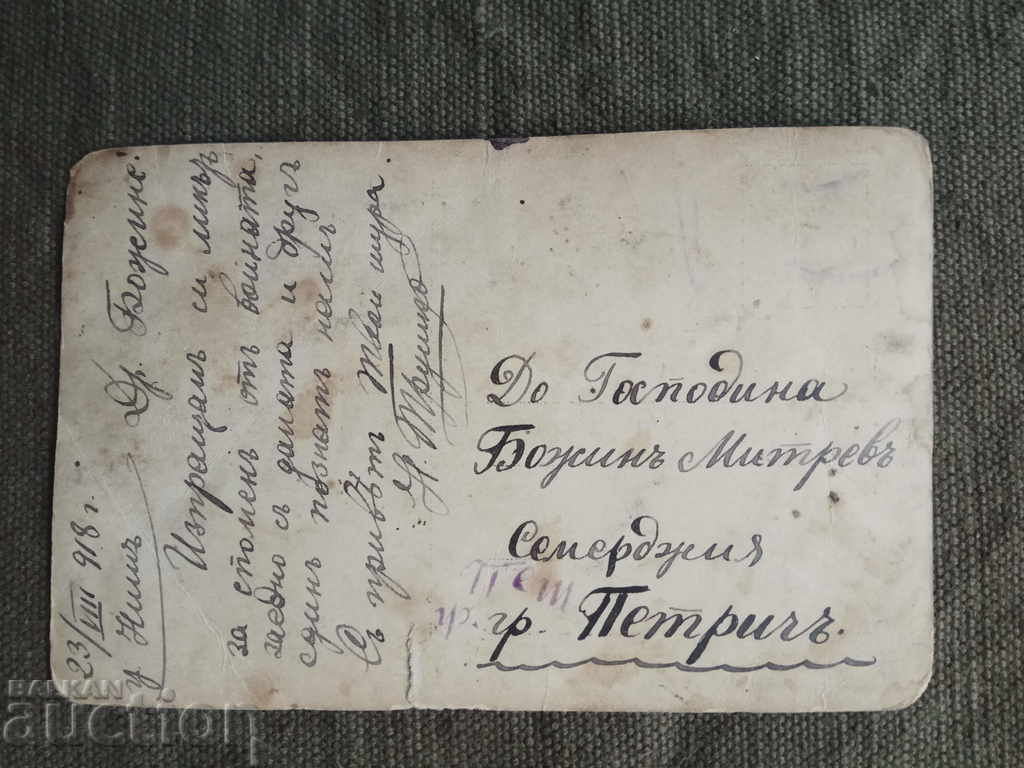 23/VIII 918 г.
гр. Нишъ
Др. Божине.
Изпращамъ си ликъ
за споменъ отъ войната,
заедно съ даината и другъ
единъ познатъ намъ
Съ привѣтъ Твой шура
До Господина
Божинъ Митревъ
Семерджия
гр. Петричъ.
BALKAN
auction